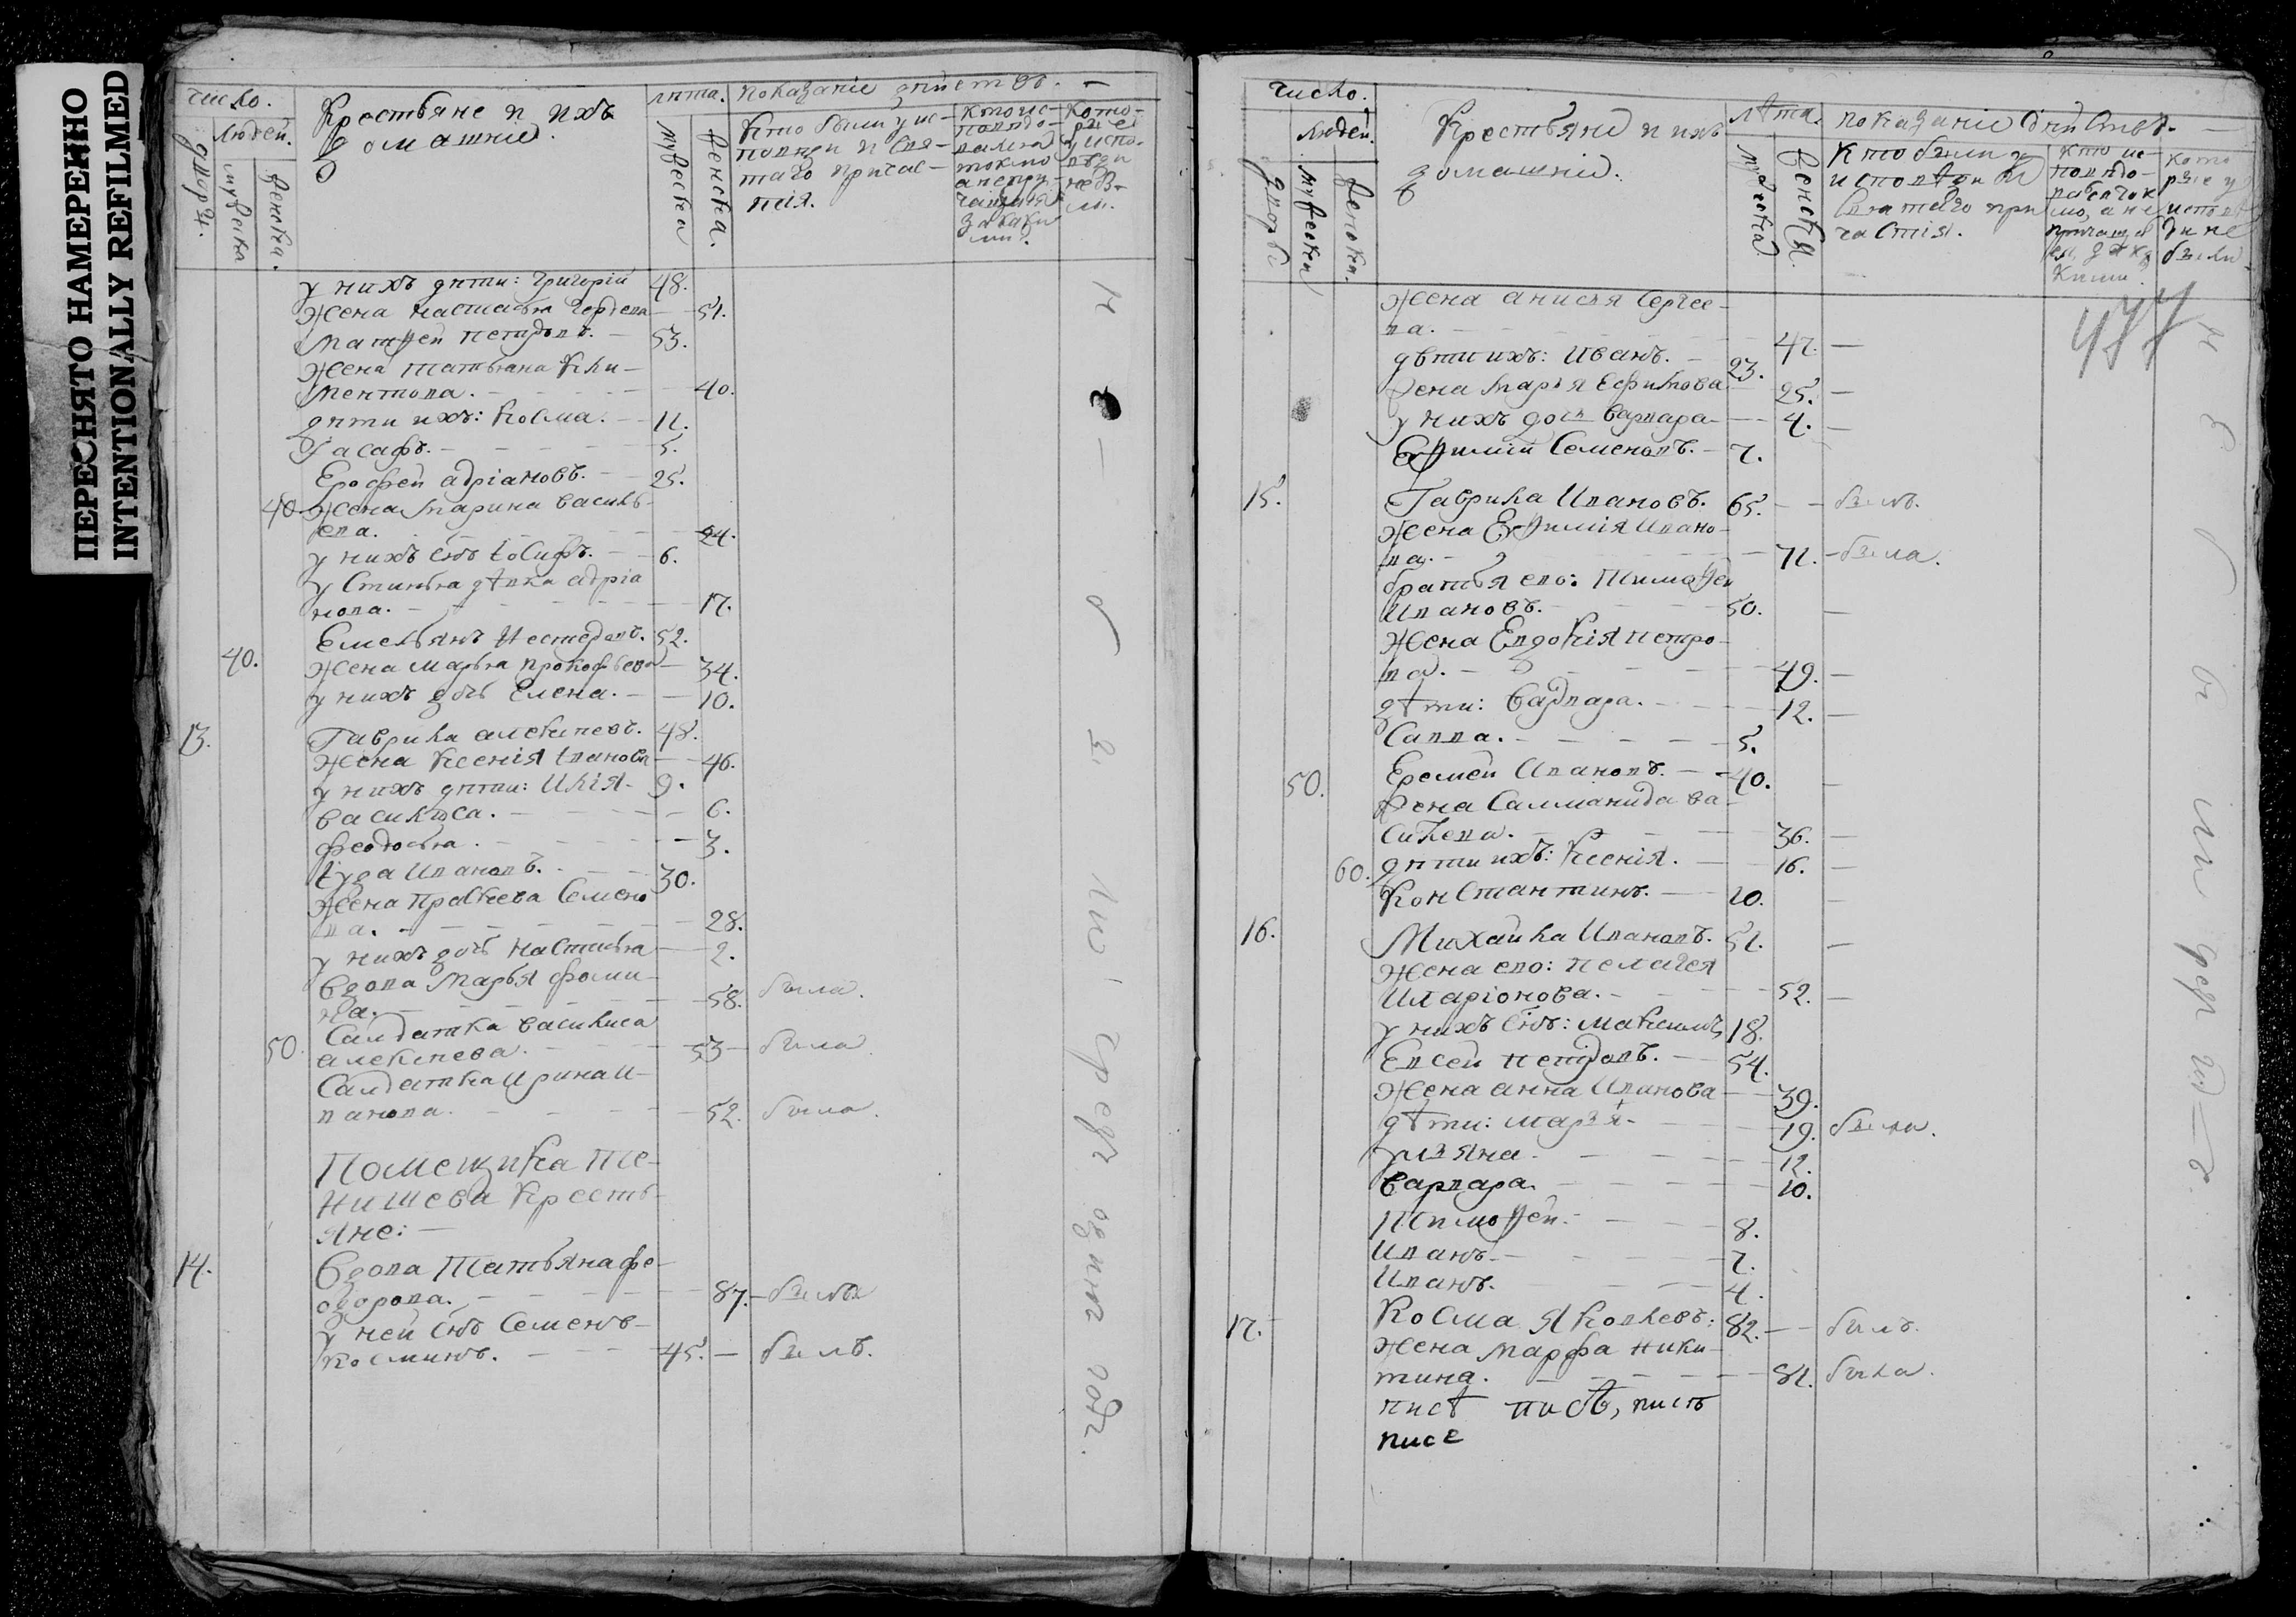 ПЕРЕСНЯТО НАМЕРЕННО
INTENTIONALLY REFILMED
число.
Людей.
дворы.
мужеска
женска.
Крестьяне и ихъ
домашніе.
лѣта.
мужеска
женска.
показаніе дѣйствъ. —
Кто были у ис-
повѣди и свя-
таго причас-
тія.
Кто ис-
повѣдо-
вался
токмо
а не при-
чащался
за каки
ми.
Кото-
рые
у испо-
вѣди
не бы-
ли.
у нихъ дѣти: Григорій 48.
Жена Настасья Гордѣева — 51.
Матѳей Петровъ. — 53.
Жена Татьяна Кли-
ментова. — 40.
дѣти ихъ: Косма. — 11.
Іасафъ. — 5.
Ерофей Адріановъ. — 25.
40 Жена Марина Василь-
ева. — 24.
у нихъ снъ Іосифъ. — 6.
Устинья дѣвка Адріа
нова. — 17.
Емельянъ Нестеровъ. 52.
40. Жена Марья Прокофьева — 34.
у нихъ дочь Елена. — 10.
13. Гаврила Алексѣевъ. 48.
Жена Ксенія Іванова — 46.
у нихъ дѣти: Илія. 9.
Василиса. — 6.
Феодосья. — 3.
Іуда Ивановъ. — 30.
Жена Прасковья Семено
ва. — 28.
у нихъ дочь Настасья — 2.
Вдова Марья Фоми-
на. — 58. была.
Салдатка Василиса
50. Алексѣева. — 53 — была.
Салдатка Ирина И-
ванова. — 52. была.
Помещика Те-
нишева Кресть-
яне: —
14. Вдова Татьяна Фе-
одорова. — 87. — была
у ней снъ Семенъ —
Косминъ. — 45. — былъ.
число.
Людей.
дворы
мужеска
женска.
Крестьяне и ихъ
домашніе.
лѣта.
мужеска
женска.
показаніе дѣйствъ. —
Кто были у
исповѣди и
святаго при
частія.
Кто ис-
повѣдо-
вался ток
мо, а не
причащал
ся, за ка
кими.
кото
рые у
исповѣ
ди не
были.
477
Жена Анисья Сергее-
ва. — 47. —
дѣти ихъ: Иванъ. — 23.
Жена Марья Ефимова 25. —
у нихъ дочь Варвара — 4. —
Ефимій Семеновъ. — 7.
15. Гаврила Ивановъ. 65. — былъ.
Жена Ефимія Ивано-
ва. — 71. — была.
братья ево: Тимоѳей
Ивановъ. — 50. —
Жена Евдокія Петро-
ва. — 49. —
дѣти: Варвара. — 12. —
Савва. — 5.
50. Еремей Ивановъ. — 40. —
Жена Салманида Ва-
сильева. — 36. —
60. дѣти ихъ: Ксенія. — 16. —
Константинъ. — 10. —
16. Михайла Ивановъ. 51. —
Жена ево: Пелагея
Иларіонова. — 52. —
у нихъ снъ: Максимъ 18.
Евсей Петровъ. — 54.
Жена Анна Иванова — 39.
дѣти: Марья — 19. была.
Ульяна — 12.
Варвара. — 10.
Тимоѳей. — 8.
Иванъ. — 7.
Иванъ. — 4.
17. Косма Яковлевъ: 82. — былъ.
Жена Марфа Ники-
тина. — 81. была.